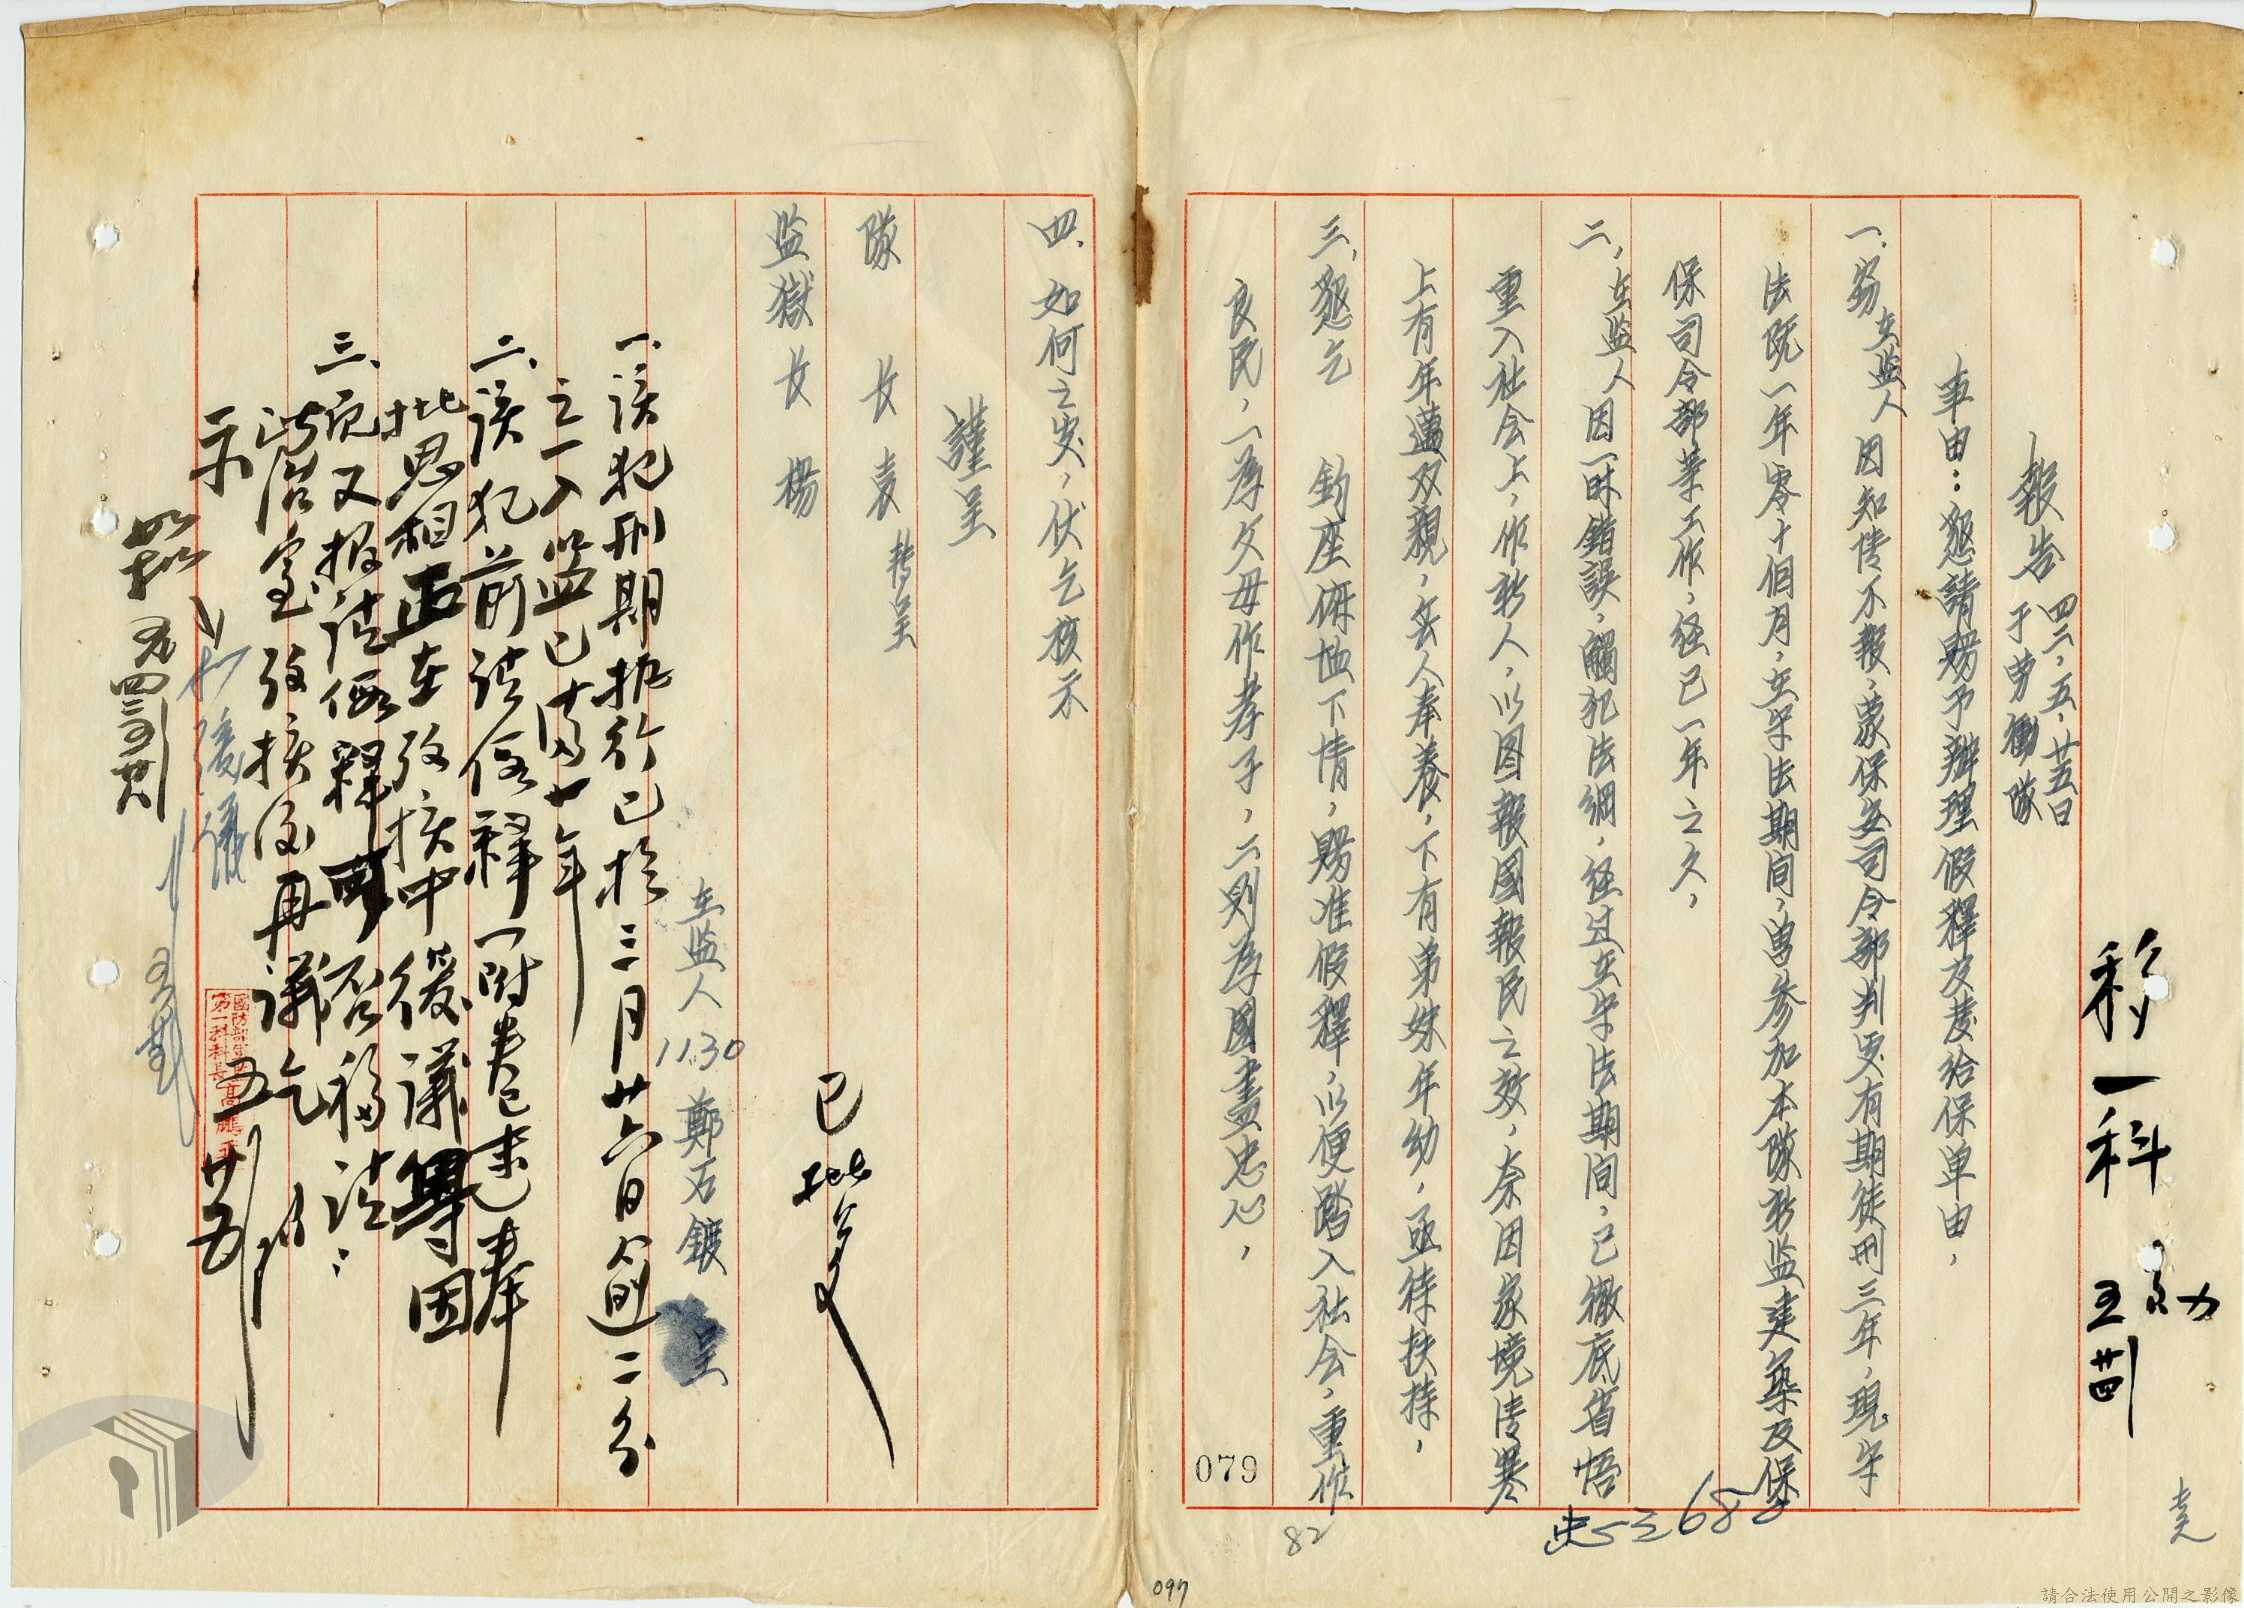 移一科
報告 四三,五.廿五日
于勞働隊
事由:懇請賜予辦理假釋及發給保单由,
一.竊在监人因知情不報,蒙保安司令部判処有期徒刑三年,現守
法既一年零十個月,在守法期间,曽參加本隊新监建築及保
保司令部等工作,经已一年之久,
二,在监人因一時錯誤,觸犯法網,经过在守法期间,已徹底省悟
重入社会上,作新人,以图報國報民之效,奈因家境清寒
上有年邁双親,無人奉養,下有弟妹年幼,亟待扶持,
三.懇乞 鈞座俯恤下情,賜准假釋,以便踏入社会,重作
良民,一為父母作孝子,二則為國盡忠心,
079
82
097
四.如何之处,伏乞核示
謹呈
隊長袁 轉呈
監獄長楊
已批答
在监人 1130 鄭石鍍 呈
一.該犯刑期执行已於三月廿六日逾二分
之一入监已满一年
二.該犯前請假釋一附卷連奉
批思想正在攷核中後議等因
三.現又报請假釋可否移請
政治室攷核後再議乞
示
如批
請合法使用公開之影像